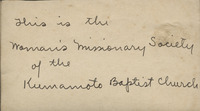 This is the
Woman's Missionary Society
of the
Kumamoto Baptist Church